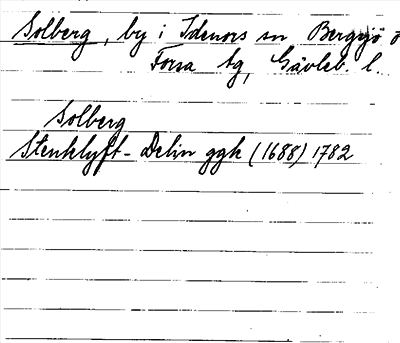 Solberg, by i Idenors sn Bergsjö o
Forsa tg, Gävleb. l.
Solberg
Stenklyft - Delin ggk (1688) 1782